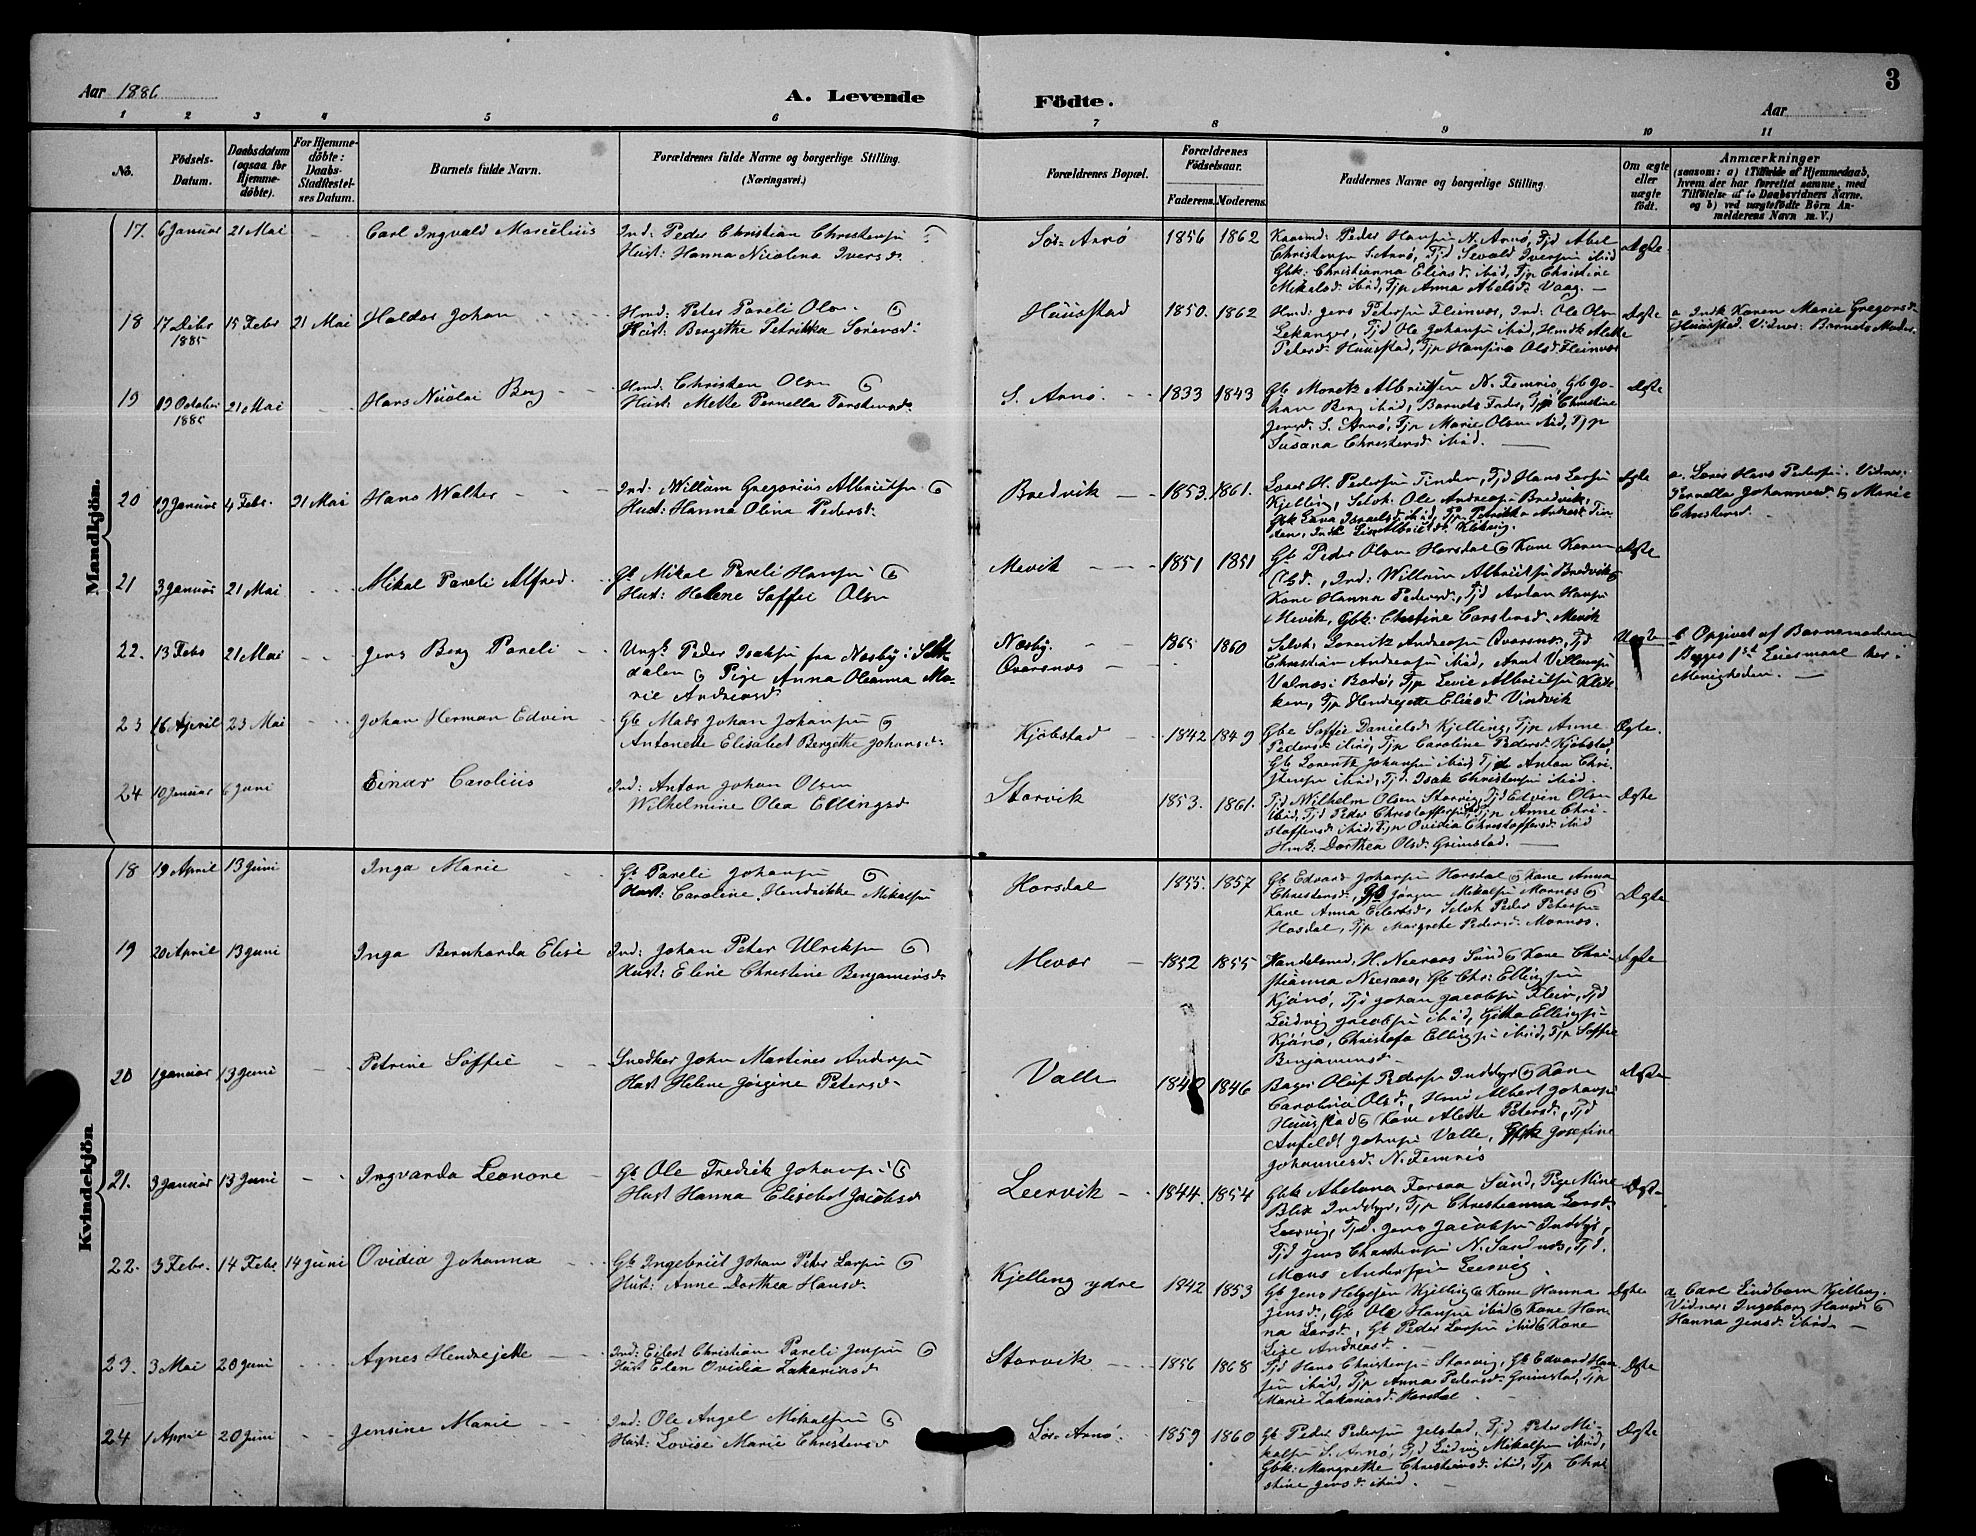 Aar 1886
A. Levende Födte.
Aar
3
1 2 3 4 5 6 7 8 9 10 11
No.
Födsels-Datum.
Daabsdatum (ogsaa for Hjemmedöbte).
For Hjemmedöbte: Daabs-Stadfæstelses Datum.
Barnets fulde Navn.
Forældrenes fulde Navne og borgerlige Stilling. (Næringsvei.)
Forældrenes Bopæl.
Forældrenes Födselsaar.
Faderens. Moderens.
Faddernes Navne og borgerlige Stilling.
Om ægte eller uægte født.
Anmærkninger
(saasom: a) i Tilfælde af Hjemmedaab, hvem der har forrettet samme, med Tilföielse af to Daabsvidners Navne, og b) ved uægtefödte Börn Anmelderens Navn m. V.)
Mandkjön.
17. 6 Januar 21 Mai Carl Ingvald Marcelius
Ind: Peder Christian Christensen
Hust: Hanna Nicolena Iversd.
Sör-Arnö 1856 1862
Peder Hansen N. Arnö, Tjd Abel
Christensen S. Arnö, Tjd Sevald Iversen ibid
Gbk: Christianna Eliasd. ibid, Tjp Christine
Mikalsd. ibid, Tjp Anna Abelsd. Vaag.
Ægte
18 17 Debr 1885 15 Febr 21 Mai Haldor Johan
Hmd: Peter Pareli Olsen
Hust: Bergette Petrikka Sörensd.
Huusstad 1850. 1862
Hmd: Jens Petersen Fleinvær, Ind: Ole Olsen
Lekanger, Tjd Ole Johansen ibid, Hmdk Alette
Petersd. Huusstad, Tjp Hansina Olsd. Fleinvær
Ægte
a Indk Karen Marie Gregorsd.
Huusstad. Vidner: Barnets Moder
19 19 October 1885 21 Mai Hans Nicolai Berg
Hmd: Christen Olsen
Hust: Mette Pernella Torstensd.
S. Arnö. 1833 1843
Gb Moretz Albrigtsen N. Femris, Gb Jo-
han Berg ibid, Barnets Fader, Tjp Christine
Jensd. S. Arnö, Tjp Marie Olsen ibid, Tjp
Susana Christensd. ibid.
Ægte
20 19 Januar 4 Febr. 21 Mai Hans Walter
Ind: William Gregorius Albrigtsen
Hust: Hanna Olina Pedersd.
Bredvik 1853. 1861.
Lærer H. Pedersen Tinden, Tjd Hans Larsen
Kjelling, Selvk: Ole Andreasen Bredvik,
Gbk Lava Israelsd. ibid, Tjp Petrikka
Ægte
a. Lærer Hans Pedersen. Vidner:
Pernella Johannesd. & Marie
Christensd.
21 3 Januar 21 Mai Mikal Pareli Alfred
Gb Mikal Pareli Hansen
Hust: Helene Soffie Olsen
Mevik 1851 1851
Gb Peder Olsen Horsdal & Kone Karen
Olsd., Ind: William Albrigtsen Bredvik &
Kone Hanna Pedersd., Tjd Anton Hansen
Mevik, Gbk: Christine Carstensd. Mevik
Ægte
22. 13 Febr 21 Mai Jens Berg Pareli
Ungk. Peder Isaksen fra Næsby i Salt-
dalen & Pige Anna Oleanna Ma-
rie Andreasd.
Næsby.
Ovarsnæs 1865 1860
Selvk: Lorentz Andreasen Ovarsnæs, Tjd
Christian Andreasen ibid, Arnt Villumsen
Valnæs i Bodö, Tjp Levie Albrigtsen
Tjp Hendrejette Eliasd. Vindvik
b Opgivet af Barnemoderen
Begges 1st Leiermaal her i
Menigheden.
23 16 April 23 Mai Johan Herman Edvin
Gb Mads Johan Johansen
Antonette Elisabet Bergette Johansd.
Kjöbstad 1842 1849
Gbe Soffie Danielsd. Kjelling, Tjp Anne
Pedersd. ibid, Tjp Caroline Pedersd. Kjöbstad,
Gb Lorentz Johansen ibid, Tjd Anton Chri-
stensen ibid, Tjd. Isak Christensen ibid.
Ægte.
24 10 Januar 6 Juni Einar Carolius
Ind: Anton Johan Olsen
Wilhelmine Olea Ellingsd
Storvik 1853. 1861.
Tjd Wilhelm Olsen Storvig, Tjd Edvin Olsen
ibid, Tjd Peder Christoffersen, Tjp Anne Chri-
stoffersd. ibid, Tjp Ovidia Christoffersd. ibid
Hmd: Dorthea Olsd. Grimstad.
Ægte
Kvindekjön
18 19 April 13 Juni Inga Marie
Gb Pareli Johansen
Hust: Caroline Hendrikke Mikalsen
Horsdal 1855. 1857
Gb Edvard Johansen Horsdal & Kone Anna
Christensd., Gb Jörgen Mikalsen Mornæs &
Kone Anna Eilertsd., Selvk Peder Petersen
Hosdal, Tjp Margrete Pedersd. Mornæs.
Ægte
19 20 April 13 Juni Inga Bernharda Elise
Ind: Johan Peter Ulriksen
Hust: Elene Christine Benjaminsd.
Mevær 1852 1855
Handelsmd. H. Neeraas Sund & Kone Chri-
stianna Neeraas, Gb Chr: Ellingsen
Kjönö, Tjd Johan Jacobsen Flein, Tjd
Ludvig Jacobsen ibid, Gjitta Ellingsen
Kjönö, Christofa Ellingsen ibid, Tjp Soffie
Benjaminsd.
Ægte
20 1 Januar 13 Juni Petrine Soffie
Snedker John Martines Andersen
Hust Helene Jörgine Petersd.
Valle 1840 1846
Bager Oluf Pedersen Inddyr & Kone
Carolina Olsd., Hmd Albert Johansen
Huusstad & Kone Alette Petersd., Tjd
Anfeldt Johnsen Valle, Gbk Josefine
Johannesd. N. Femris
Ægte
21. 9 Januar 13 Juni Ingvarda Leonore
Gb Ole Fredrik Johansen
Hust Hanna Elisebet Jacobsd
Leervik 1844. 1854
Gbk Abelona Forsaa Sund, Pige Mine
Blix Inddyr, Tjp Christianna Larsd.
Leervig, Tjd. Jens Jacobsen Inddyr,
Tjd Jens Christensen N. Sandnæs, Tjd.
Mons Andersen Leervig.
Ægte
22. 3 Febr. 14 Febr. 14 Juni Ovidia Johanna
Gb Ingebrigt Johan Peter Larsen
Hust: Anne Dorthea Hansd.
Kjelling ydre 1842 1853
Gb Jens Helgesen Kjelling & Kone Hanna
Jensd., Gb Ole Hansen ibid & Kone Han-
na Larsd., Gb Peder Larsen ibid & Kone
Lise Andreasd.
Ægte
a Carl Lindbom Kjelling.
Vidner: Ingeborg Hansd. &
Hanna Jensd. ibid.
23. 3 Mai 20 Juni Agnes Hendrejette
Ind: Eilert Christian Pareli Jensen
Hust Elen Ovidia Zakariasd
Storvik 1856 1868
Tjd Hans Christensen Storvig, Gb Edvard Han-
sen ibid, Tjp Anna Pedersd. Grimstad, Tjp
Marie Zakariasd. Horsdal
Ægte
24 1 April 20 Juni Jensine Marie
Ind: Ole Angel Mikalsen
Hust: Lovise Marie Christensd
Sör-Arnö. 1859 1860
Gb Peder Pedersen Jelstad, Tjd Peter Mi-
kalsen S. Arnö, Tjd Ludvig Mikalsen ibid,
Gbk: Margrethe Christiansd. ibid, Tjp Chri-
stine Jensd. ibid.
Ægte